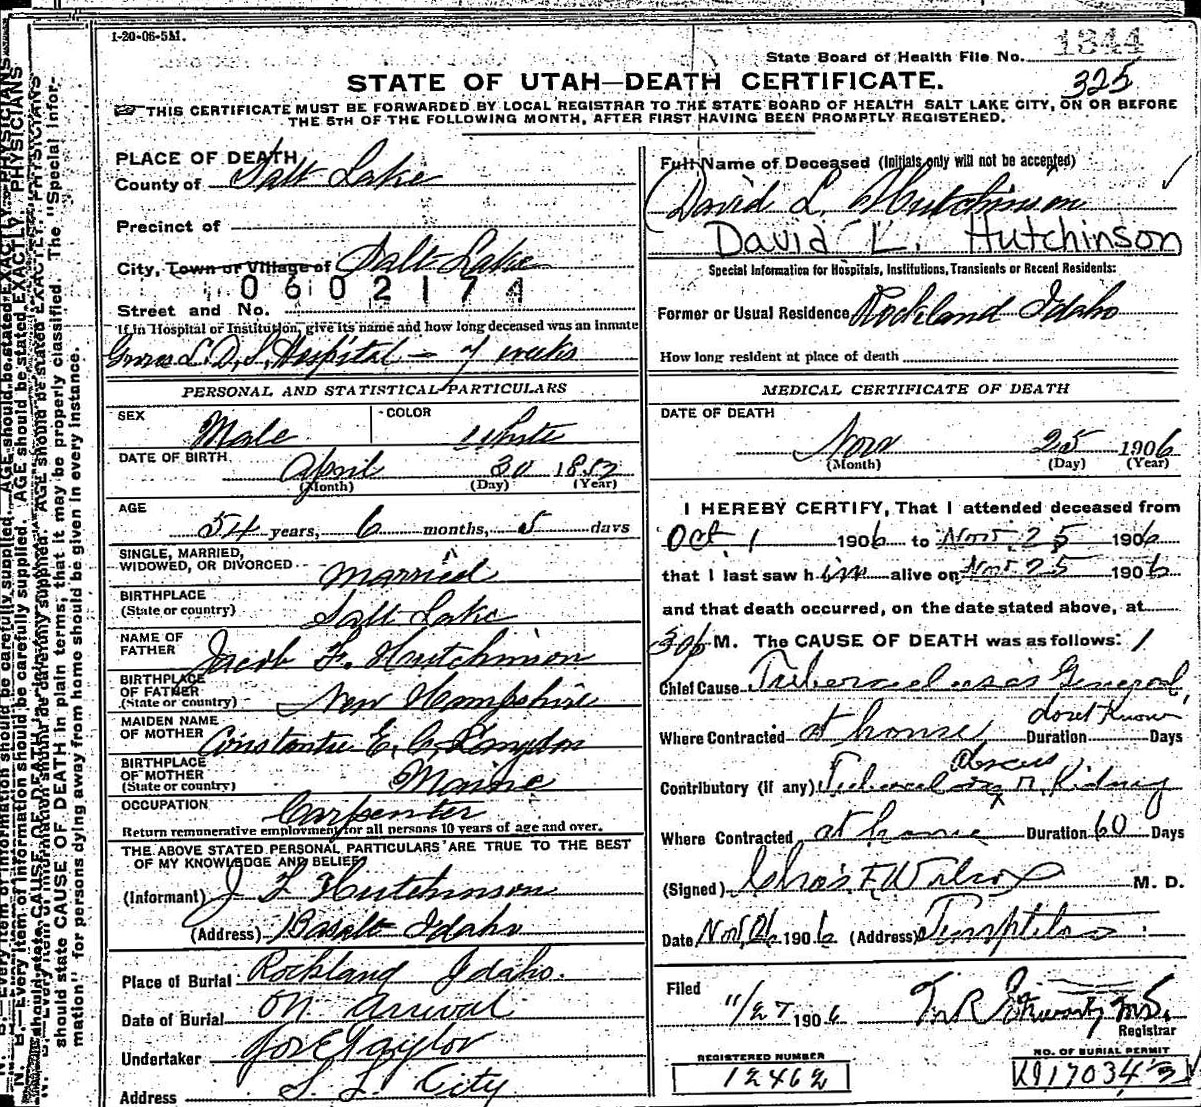 1-20-06-5M.
State Board of Health File No. 1344
325
STATE OF UTAH—DEATH CERTIFICATE.
THIS CERTIFICATE MUST BE FORWARDED BY LOCAL REGISTRAR TO THE STATE BOARD OF HEALTH SALT LAKE CITY, ON OR BEFORE
THE 5TH OF THE FOLLOWING MONTH, AFTER FIRST HAVING BEEN PROMPTLY REGISTERED.
PLACE OF DEATH
County of Salt Lake
Precinct of
City, Town or Village of Salt Lake
0602174
Street and No.
If in Hospital or Institution, give its name and how long deceased was an inmate
L.D.S. Hospital - 7 weeks
Full Name of Deceased (Initials only will not be accepted)
David L. Hutchinson
David L. Hutchinson
Special Information for Hospitals, Institutions, Transients or Recent Residents:
Former or Usual Residence Rockland Idaho
How long resident at place of death
PERSONAL AND STATISTICAL PARTICULARS
SEX Male
COLOR White
DATE OF BIRTH April 20 1852
(Month) (Day) (Year)
AGE
54 years, 6 months, 5 days
SINGLE, MARRIED,
WIDOWED, OR DIVORCED Married
BIRTHPLACE
(State or country) Salt Lake
NAME OF
FATHER Jacob F. Hutchinson
BIRTHPLACE
OF FATHER
(State or country) New Hampshire
MAIDEN NAME
OF MOTHER E. C. Langdon
BIRTHPLACE
OF MOTHER
(State or country) Maine
OCCUPATION Carpenter
Return remunerative employment for all persons 10 years of age and over.
THE ABOVE STATED PERSONAL PARTICULARS ARE TRUE TO THE BEST
OF MY KNOWLEDGE AND BELIEF
(Informant) J F Hutchinson
(Address) Basalt Idaho
Place of Burial Rockland Idaho.
Date of Burial On Arrival
Undertaker Jos E Taylor
Address S. L. City
MEDICAL CERTIFICATE OF DEATH
DATE OF DEATH
Nov 25 1906
(Month) (Day) (Year)
I HEREBY CERTIFY, That I attended deceased from
Oct 1 1906 to Nov. 25 1906
that I last saw him alive on Nov 25 1906
and that death occurred, on the date stated above, at
M. The CAUSE OF DEATH was as follows:
Chief Cause Tuberculosis General
Where Contracted at home Duration dont Know Days
Contributory (if any) Tubercular abscess r. Kidney
Where Contracted at home Duration 60 Days
(Signed) Chas. F. Wilcox M. D.
Date Nov. 26 1906 (Address) Templeton
Filed
11/27 1906
Registrar
REGISTERED NUMBER
12462
NO. OF BURIAL PERMIT
K917034
N. B.—Every item of information should be carefully supplied. AGE should be stated EXACTLY. PHYSICIANS
should state CAUSE OF DEATH in plain terms, that it may be properly classified. The "Special Infor-
mation" for persons dying away from home should be given in every instance.